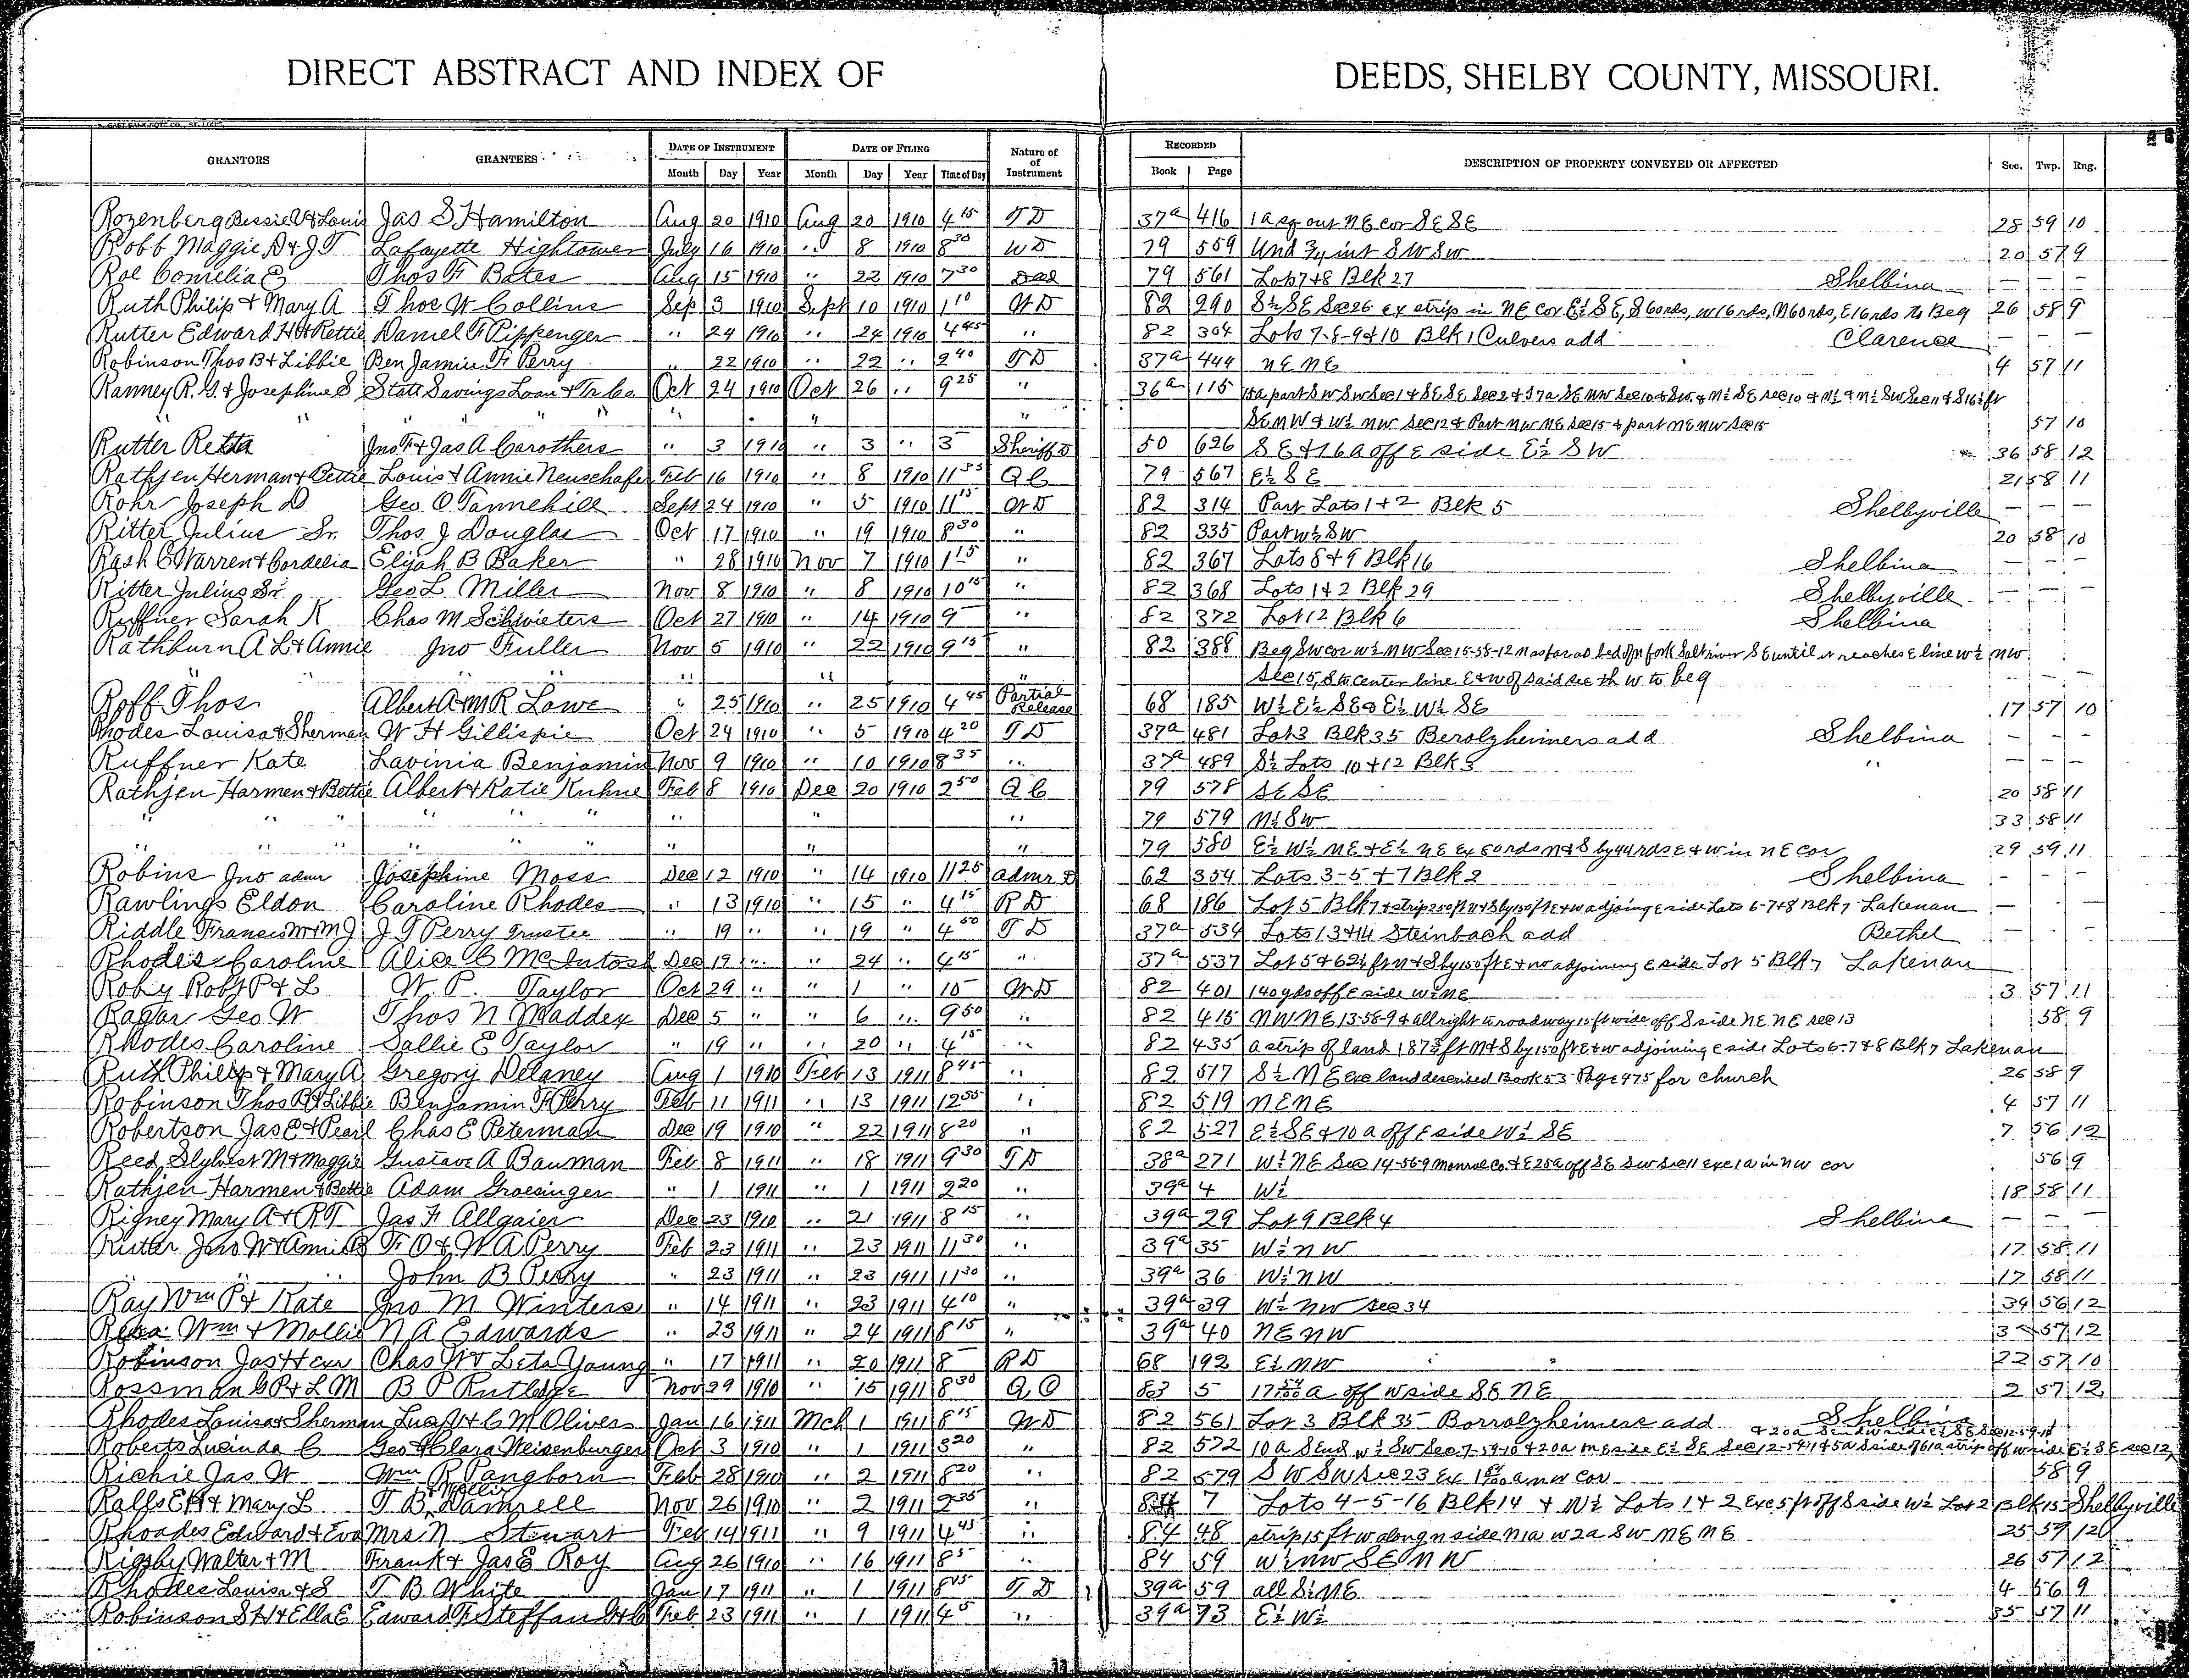 DIRECT ABSTRACT AND INDEX OF DEEDS, SHELBY COUNTY, MISSOURI.
GRANTORS GRANTEES DATE OF INSTRUMENT DATE OF FILING Nature of of Instrument RECORDED DESCRIPTION OF PROPERTY CONVEYED OR AFFECTED Sec. Twp. Rng.
Month Day Year Month Day Year Time of Day Book Page
Rozenberg Bessie A & Louis Jas S Hamilton Aug 20 1910 Aug 20 1910 4 15 T D 37a 416 1 a sq out NE cor SE SE 28 59 10
Robb Maggie D & J T Lafayette Hightower July 16 1910 " 8 1910 8 30 W D 79 559 Und 3/4 int SW SW 20 57 9
Roe Cornelia E Thos F Bates Aug 15 1910 " 22 1910 7 30 Deed 79 561 Lots 7 & 8 Blk 27 Shelbina — — —
Ruth Philip & Mary A Thos W Collins Sep 3 1910 Sept 10 1910 1 10 W D 82 290 S½ SE Sec 26 ex strip in NE cor E½ SE, S 60rds, W 16rds, N 60rds, E 16rds to Beg 26 58 9
Rutter Edward H & Rettie Daniel F Pippenger " 24 1910 " 24 1910 4 45 " 82 304 Lots 7-8-9 & 10 Blk 1 Culvers add Clarence — — —
Robinson Thos B & Libbie Benjamin F Perry " 22 1910 " 22 " 2 40 T D 37a 444 NE NE 4 57 11
Ranney R. G. & Josephine S State Savings Loan & Tr Co Oct 24 1910 Oct 26 " 9 25 " 36a 115 15a part SW SW Sec 1 & SE SE Sec 2 & 37a SE NW Sec 10 & SW & N½ SE sec 10 & N½ & N½ SW Sec 11 & S 16½ ft
" " " " " " SE NW & W½ NW Sec 12 & Part NW NE Sec 15 & part NE NW Sec 15 57 10
Rutter Retta Jno F & Jas A Carothers " 3 1910 " 3 " 3 Sheriff D 50 626 SE & 16a off E side E½ SW 36 58 12
Rathjen Herman & Bettie Louis & Annie Neuschafer Feb 16 1910 " 8 1910 11 35 Q C 79 567 E½ SE 21 58 11
Rohr Joseph D Geo O Tannehill Sept 24 1910 " 5 1910 11 15 W D 82 314 Part Lots 1 & 2 Blk 5 Shelbyville — — —
Ritter Julius Sr. Thos J Douglas Oct 17 1910 " 19 1910 8 30 " 82 335 Part W½ SW 20 58 10
Rash C Warren & Cordelia Elijah B Baker " 28 1910 Nov 7 1910 1 15 " 82 367 Lots 8 & 9 Blk 16 Shelbina — — —
Ritter Julius Sr Geo L Miller Nov 8 1910 " 8 1910 10 15 " 82 368 Lots 1 & 2 Blk 29 Shelbyville — — —
Ruffner Sarah K Chas M Schwieters Oct 27 1910 " 14 1910 9 " 82 372 Lot 12 Blk 6 Shelbina
Rathburn A L & Annie Jno Fuller Nov 5 1910 " 22 1910 9 15 " 82 388 Beg SW cor W½ NW Sec 15-58-12 N as far as bed of N fork Salt river SE until it reaches E line W½ NW
" " " " " Sec 15, S to center line E & W of said sec th W to beg — —
Roff Thos Albert A & M R Lowe " 25 1910 " 25 1910 4 45 Partial Release 68 185 W½ E½ SE & E½ W½ SE 17 57 10
Rhodes Louisa & Sherman W H Gillispie Oct 24 1910 " 5 1910 4 20 T D 37a 481 Lot 3 Blk 35 Berolzheimers add Shelbina — — —
Ruffner Kate Lavinia Benjamin Nov 9 1910 " 10 1910 8 35 " 37a 489 S½ Lots 10 & 12 Blk 3 " — — —
Rathjen Harmen & Bettie Albert & Katie Kuhne Feb 8 1910 Dec 20 1910 2 50 Q C 79 578 SE SE 20 58 11
" " " " " " " " " 79 579 N½ SW 33 58 11
" " " " " " " " 79 580 E½ W½ NE & E½ NE ex 60rds N & S by 44rds E & W in NE cor 29 59 11
Robins Jno admr Josephine Moss Dec 12 1910 " 14 1910 11 25 Admr D 62 354 Lots 3-5 & 7 Blk 2 Shelbina — — —
Rawlings Eldon Caroline Rhodes " 13 1910 " 15 " 4 15 R D 68 186 Lot 5 Blk 7 & strip 250ft N & S by 150ft E & W adjoing E side Lots 6-7 & 8 Blk 7 Lakenan — — —
Riddle Francis M & M J J T Perry Trustee " 19 " " 19 " 4 50 T D 37a 534 Lots 13 & 14 Steinbach add Bethel — — —
Rhodes Caroline Alice C McIntosh Dec 19 " " 24 " 4 15 " 37a 537 Lot 5 & 62½ ft N & S by 150ft E & W adjoining E side Lot 5 Blk 7 Lakenan
Roby Robt P & L W. P. Taylor Oct 29 " " 1 " 10 W D 82 401 140 yds off E side W½ NE 3 57 11
Ragar Geo W Thos N Maddex Dec 5 " " 6 " 9 50 " 82 415 NW NE 13-58-9 & all right to roadway 15ft wide off S side NE NE Sec 13 58 9
Rhodes Caroline Sallie E Taylor " 19 " " 20 " 4 15 " 82 435 a strip of land 187½ ft N & S by 150 ft E & W adjoining E side Lots 6-7 & 8 Blk 7 Lakenan
Ruth Philip & Mary A Gregory Delaney Aug 1 1910 Feb 13 1911 8 45 " 82 517 S½ NE exc land described Book 53 Page 475 for church 26 58 9
Robinson Thos B & Libbie Benjamin F Perry Feb 11 1911 " 13 1911 12 55 " 82 519 NE NE 4 57 11
Robertson Jas E & Pearl Chas E Peterman Dec 19 1910 " 22 1911 8 20 " 82 527 E½ SE & 10 a off E side W½ SE 7 56 12
Reed Slylvest M & Maggie Gustave A Bauman Feb 8 1911 " 18 1911 9 30 T D 38a 271 W½ NE Sec 14-56-9 Monroe Co. & E 25a off SE SW Sec 11 exc 1 a in NW cor 56 9
Rathjen Harmen & Bettie Adam Groesinger " 1 1911 " 1 1911 2 20 " 39a 4 W½ 18 58 11
Rigney Mary A & R T Jas F Allgaier Dec 23 1910 " 21 1911 8 15 " 39a 29 Lot 9 Blk 4 Shelbina — — —
Rutter Jno W & Annie B F O & W A Perry Feb 23 1911 " 23 1911 11 30 " 39a 35 W½ NW 17 58 11
" " " John B Perry " 23 1911 " 23 1911 11 30 " 39a 36 W½ NW 17 58 11
Ray Wm P & Kate Jno M Winters " 14 1911 " 23 1911 4 10 " 39a 39 W½ NW Sec 34 34 56 12
Wm & Mollie N A Edwards " 23 1911 " 24 1911 8 15 " 39a 40 NE NW 3 57 12
Robinson Jas H exr Chas W & Leta Young " 17 1911 " 20 1911 8 R D 68 192 E½ NW 22 57 10
Rossman G P & L M B P Rutledge Nov 29 1910 " 15 1911 8 30 Q C 83 5 17 54/100 a off W side SE NE 2 57 12
Rhodes Louisa & Sherman Lucy A & C M Olivers Jan 16 1911 Mch 1 1911 8 15 W D 82 561 Lot 3 Blk 35 Borrolzheimers add Shelbina
Roberts Lucinda C Geo & Clara Weisenburger Oct 3 1910 " 1 1911 3 20 " 82 572 10 a S end W½ SW Sec 7-59-10 & 20a
Richie Jas W Wm R Pangborn Feb 28 1910 " 2 1911 8 20 " 82 579 SW SW Sec 23 Ex NW cor 58 9
Ralls E H & Mary L T B & Mollie Damrell Nov 26 1910 " 2 1911 2 35 " 84 7 Lots 4-5-16 Blk 14 & N½ Lots 1 & 2 exc 5ft off S side W½ Lot 2 Blk 15 Shelbyville
Rhoades Edward & Eva Mrs N Stewart Feb 14 1911 " 9 1911 4 45 " 84 48 strip 15 ft W along N side N 1a W 2a SW NE NE 25 59 12
Rigsby Walter & M Frank & Jas E Roy Aug 26 1910 " 16 1911 8 5 " 84 59 W½ NW SE NW 26 57 12
Rhodes Louisa & S T B White Jan 17 1911 " 1 1911 8 15 T D 39a 59 all S½ NE 4 56 9
Robinson S H & Ella E Edward F Steffan Feb 23 1911 " 1 1911 4 5 " 39a 73 E½ W½ 35 57 11